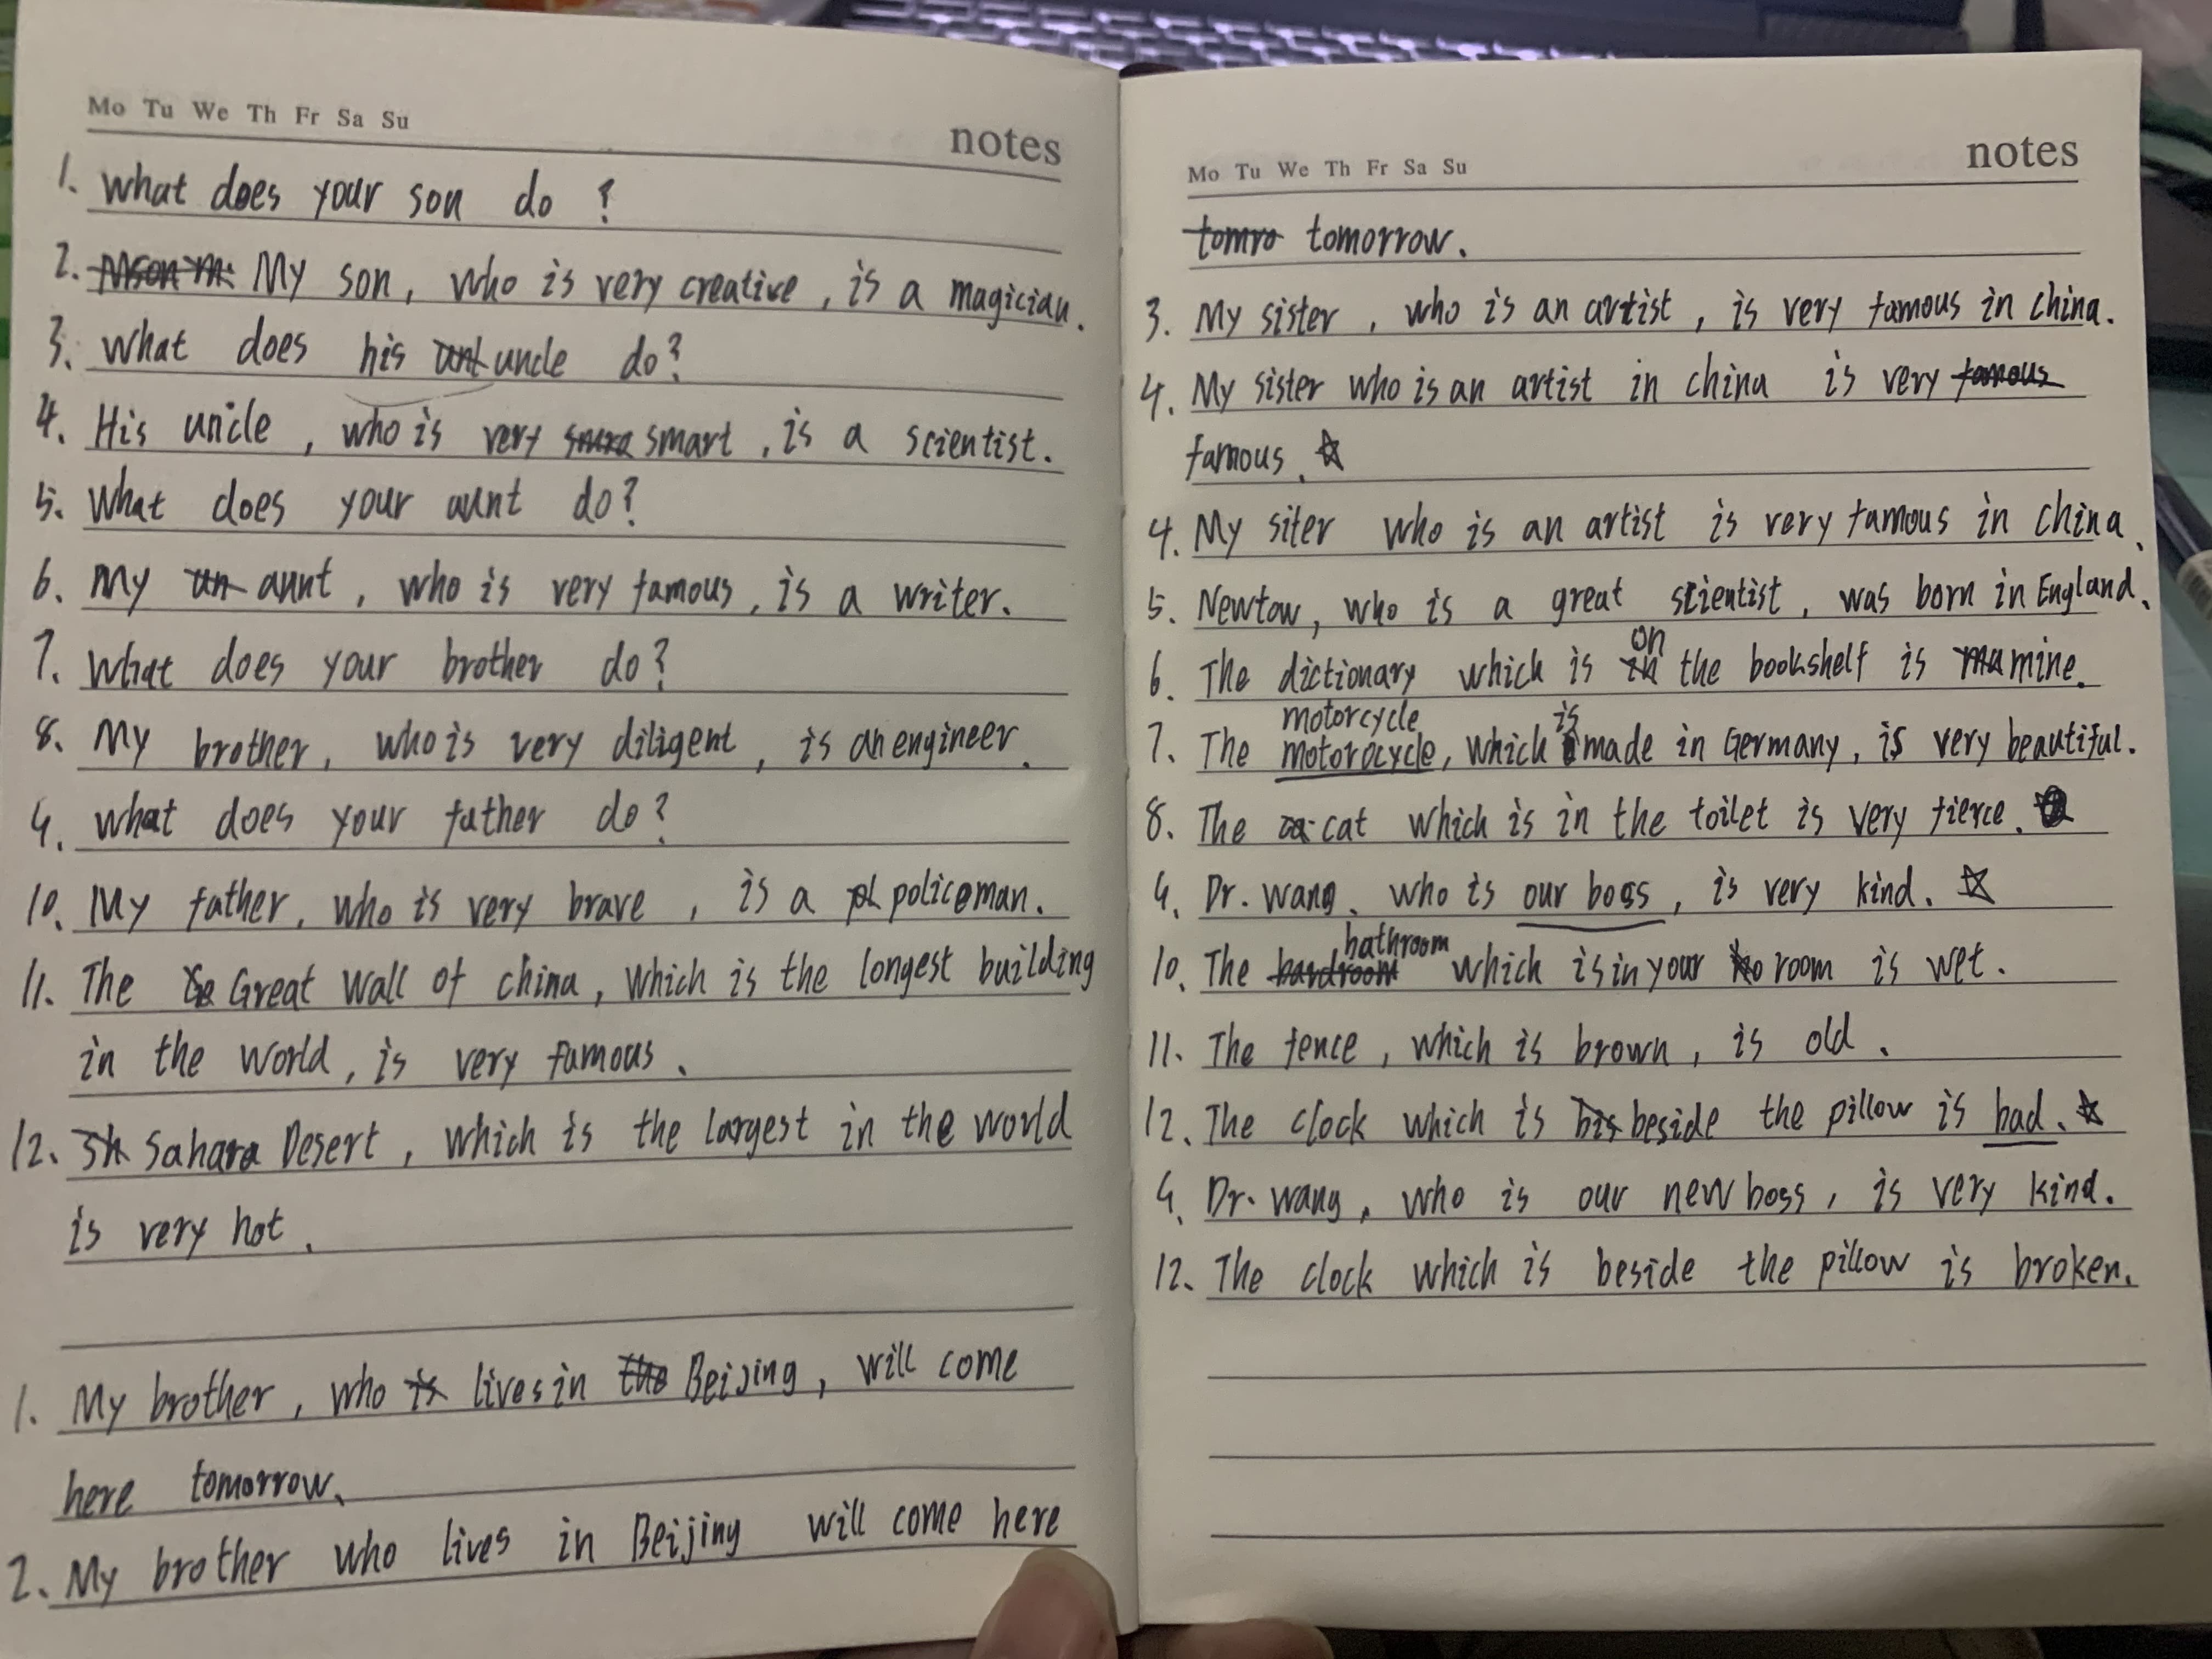 Mo Tu We Th Fr Sa Su
notes
1. What does your son do ?
2. My son, who is very creative, is a magician.
3. What does his uncle do?
4. His uncle, who is very smart, is a scientist.
5. What does your aunt do?
6. My aunt, who is very famous, is a writer.
7. What does your brother do?
8. My brother, who is very diligent, is an engineer.
9. what does your father do?
10. My father, who is very brave, is a policeman.
11. The Great Wall of china, which is the longest building
in the world, is very famous.
12. Sahara Desert, which is the largest in the world
is very hot.
1. My brother, who lives in Beijing, will come
here tomorrow.
2. My brother who lives in Beijing will come here
Mo Tu We Th Fr Sa Su
notes
tomorrow.
3. My sister, who is an artist, is very famous in china.
4. My sister who is an artist in china is very
famous. ☆
4. My siter who is an artist is very famous in china.
5. Newtow, who is a great scientist, was born in England.
6. The dictionary which is on the bookshelf is mine.
motorcycle is
7. The motorocycle, which made in Germany, is very beautiful.
8. The cat which is in the toilet is very fierce.
9. Dr. Wang, who is our boss, is very kind. ☆
10. The bathroom which is in your room is wet.
11. The fence, which is brown, is old.
12. The clock which is beside the pillow is bad. ☆
9. Dr. Wang, who is our new boss, is very kind.
12. The clock which is beside the pillow is broken.